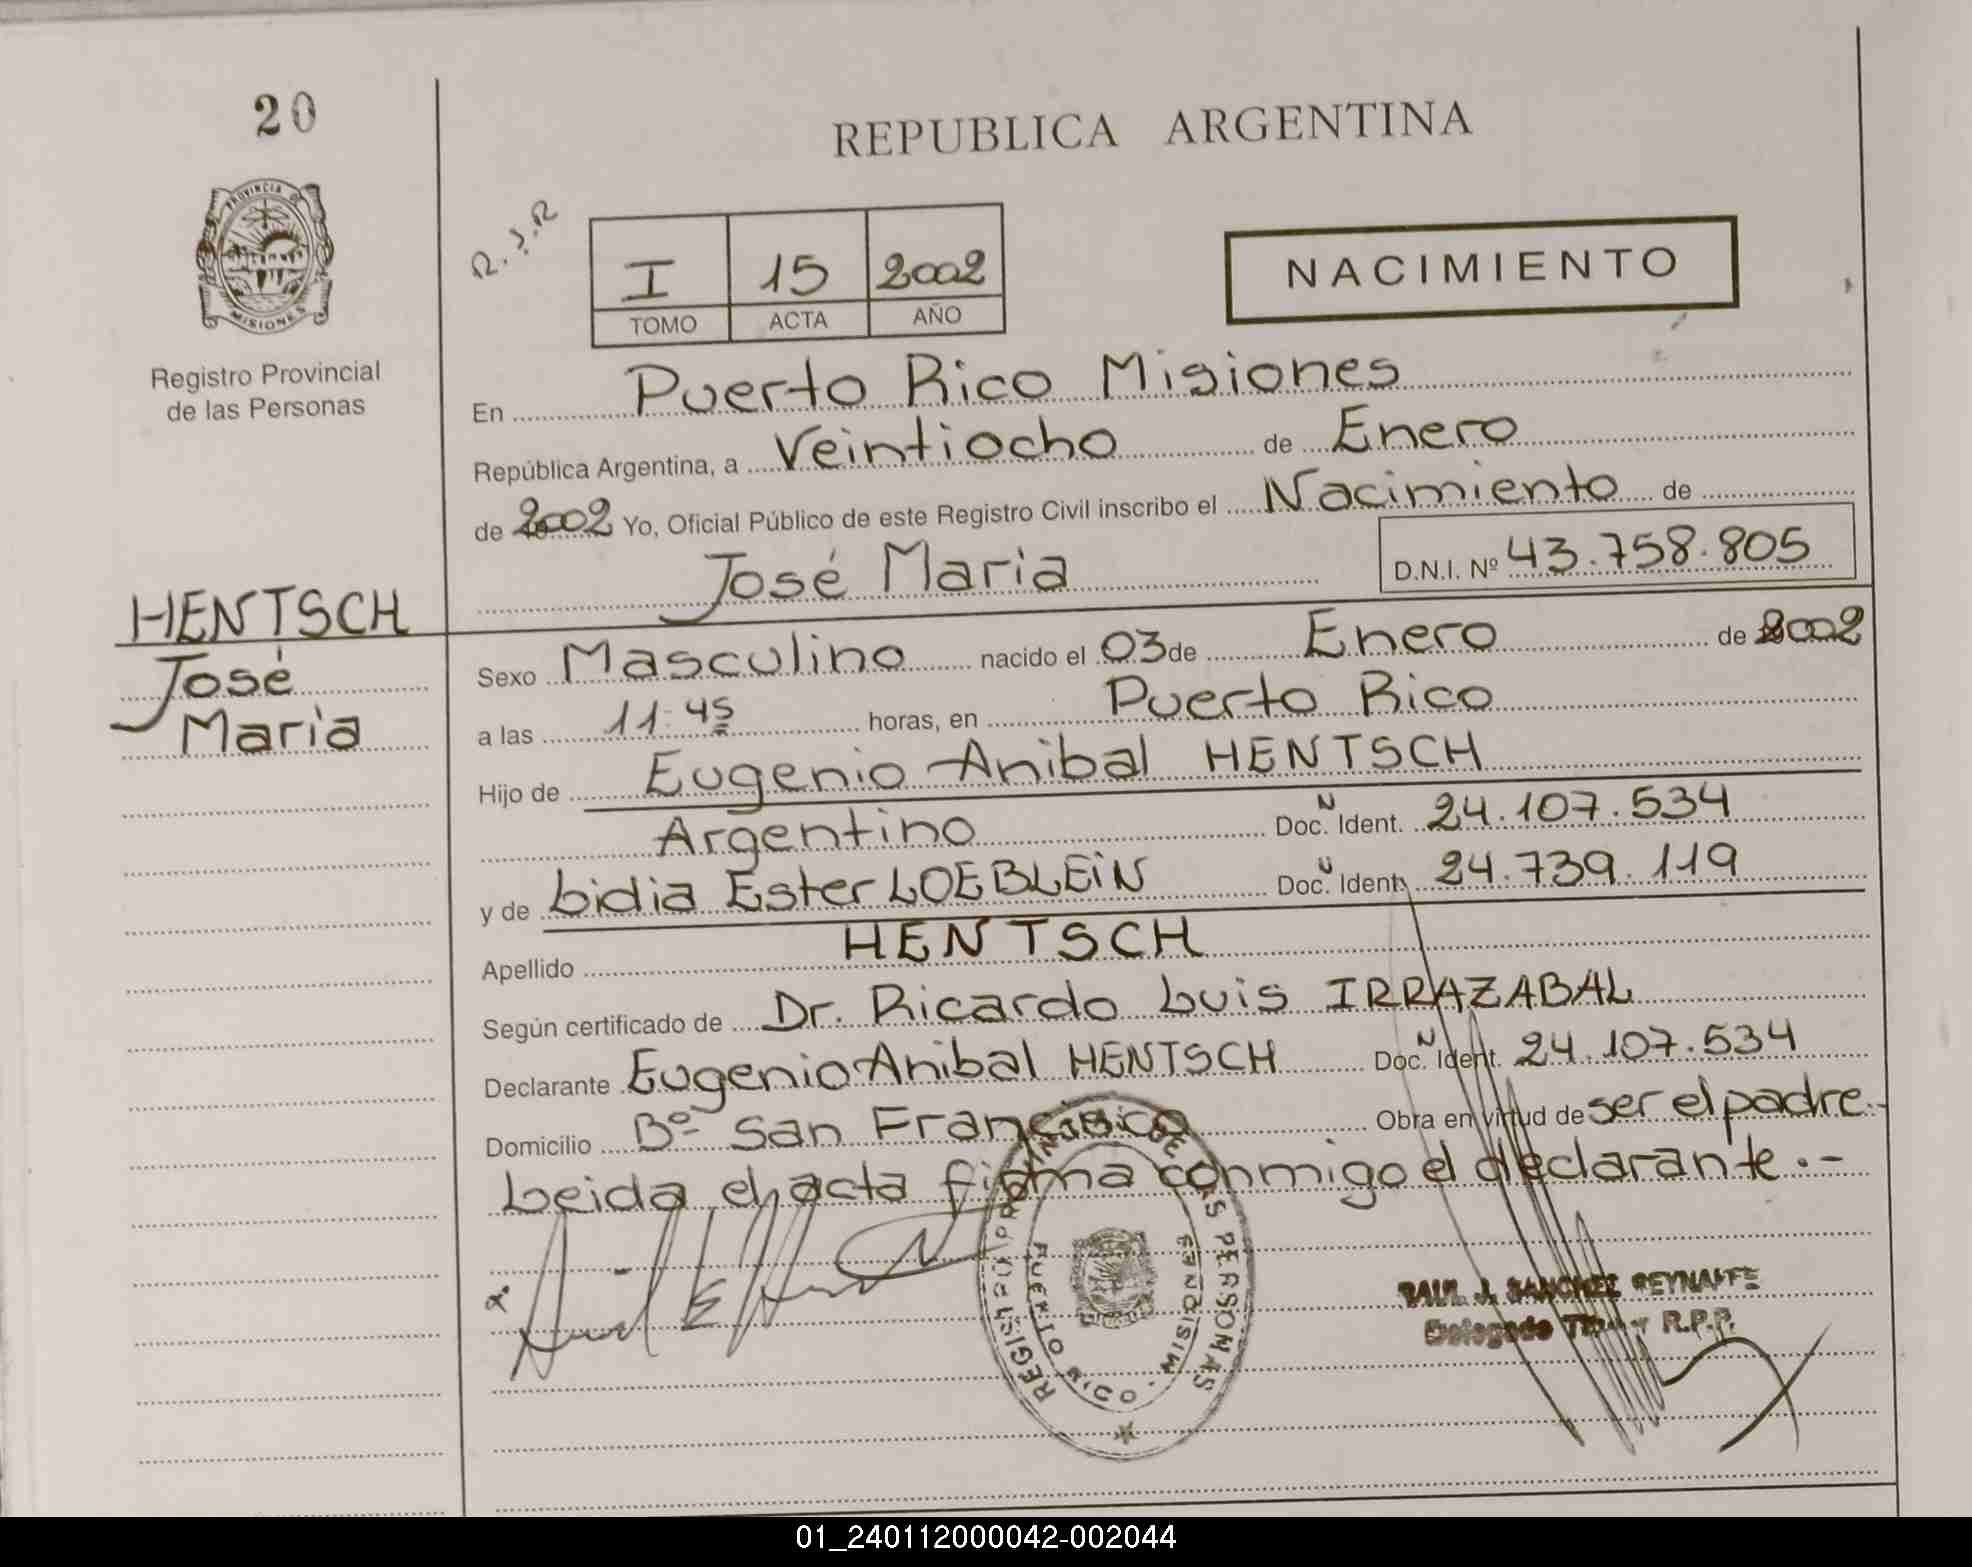 20
REPUBLICA ARGENTINA
PROVINCIA DE
MISIONES
Registro Provincial
de las Personas
R.J.R
I 15 2002
TOMO ACTA AÑO
NACIMIENTO
En Puerto Rico Misiones
República Argentina, a Veintiocho de Enero
de 2002 Yo, Oficial Público de este Registro Civil inscribo el Nacimiento de
José Maria D.N.I. Nº 43.758.805
HENTSCH
José
Maria
Sexo Masculino nacido el 03 de Enero de 2002
a las 11:45 horas, en Puerto Rico
Hijo de Eugenio Anibal HENTSCH
Argentino Doc. N Ident. 24.107.534
y de Lidia Ester LOEBLEiN Doc. N Ident. 24.739.119
Apellido HENTSCH
Según certificado de Dr. Ricardo Luis IRRAZABAL
Declarante Eugenio Anibal HENTSCH Doc. N Ident. 24.107.534
Domicilio Bº San Francisco Obra en virtud de ser el padre.-
Leida el acta firma conmigo el declarante.-
REGISTRO PROVINCIAL DE LAS PERSONAS
PUERTO RICO - MISIONES
RAUL J. SANCHEZ REYNAFFE
Delegado Titular R.P.P.
01_240112000042-002044